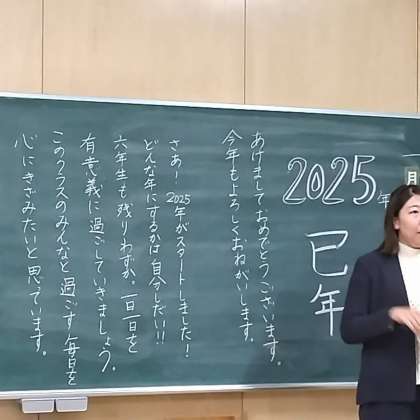 2025年
巳年
あけましておめでとうございます。
今年もよろしくおねがいします。
さぁ！2025年がスタートしました！
どんな年にするかは自分しだい!!
六年生も残りわずか。一日一日を
有意義に過ごしていきましょう。
このクラスのみんなと過ごす毎日を
心にきざみたいと思っています。
月